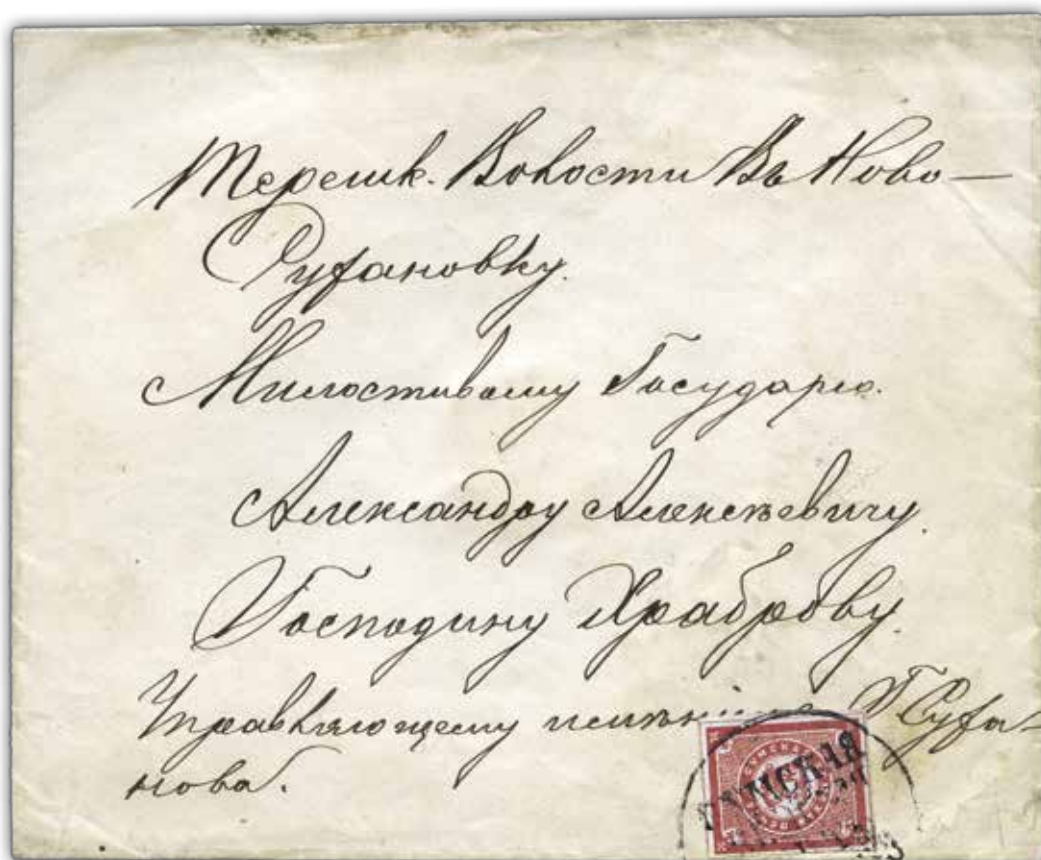 Терешк. Волости Въ Ново—
Суханов­ку.
Милостивому Государю.
Александру Алексѣевичу.
Господину Храброву.
Управляющему имѣніемъ Г Суха-
нова.
СУМСКАЯ